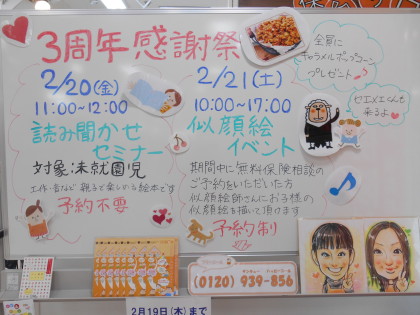 3周年感謝祭
2/20(金)
11:00~12:00
読み聞かせ
セミナー
対象:未就園児
工作・音など親子で楽しめる絵本です
予約不要
2/21(土)
10:00~17:00
似顔絵
イベント
期間中に無料保険相談の
ご予約をいただいた方
似顔絵師さんにお子様の
似顔絵を描いて頂けます
予約制
全員に
キャラメルポップコーン
プレゼント
セエメエくんも
来るよ
(0120) 939-856
2月19日(木)まで